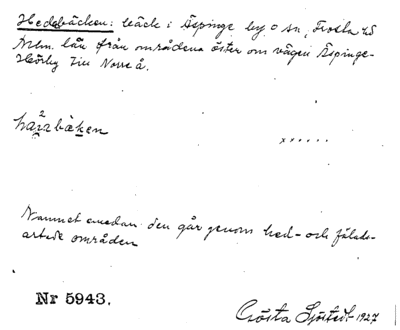 Hedebäcken: bäck i Äspinge by o sn, Frosta hd
Mlm. län från områdena öster om vägen Äspinge-
Hörby till Norre å.
2
xx....
Namnet emedan den går genom hed- och fälads-
artade områden
Nr 5943.
Gösta Sjöstedt 1927